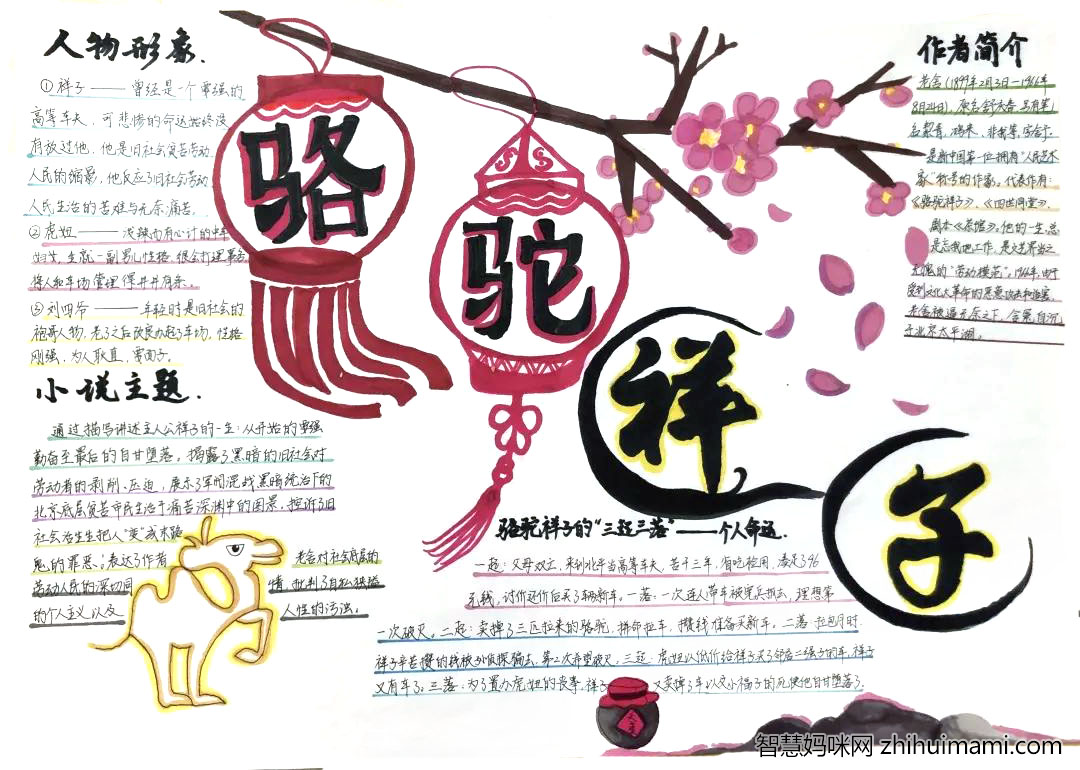 骆
驼
祥
子
人物形象.
①祥子——曾经是一个要强的
高等车夫，可悲惨的命运始终没
有放过他，他是旧社会贫苦劳动
人民的缩影，他反应了旧社会劳动
人民生活的苦难与无奈痛苦。
②虎妞——泼辣而有心计的中年
妇女，生就一副男儿性格，很会打理事务
将人和车场管理得井井有条。
③刘四爷——年轻时是旧社会的
袍哥人物，老了之后改良办起了车场，性格
刚强，为人耿直，要面子。
小说主题.
通过描写讲述主人公祥子的一生：从开始的要强
勤奋至最后的自甘堕落。揭露了黑暗的旧社会对
劳动者的剥削、压迫，展示了军阀混战黑暗统治下的
北京底层贫苦市民生活于痛苦深渊中的图景，控诉了旧
社会活生生把人“变”成末路
鬼的罪恶；表达了作者老舍对社会底层的
劳动人民的深切同情，批判了自私狭隘
的个人主义以及人性的污浊。
作者简介
老舍（1899年2月3日—1966年
8月24日），原名舒庆春，另有笔
名絜青、鸿来、非我等，字舍予
是新中国第一位拥有“人民艺术
家”称号的作家。代表作有：
《骆驼祥子》、《四世同堂》、
剧本《茶馆》，他的一生，总
是忘我地工作，是文艺界当之
无愧的“劳动模范”。1966年，由于
受到文化大革命的恶意攻击和迫害，
老舍被逼无奈之下，含冤自沉
于北京太平湖。
骆驼祥子的“三起三落”——个人命运.
一起：父母双亡，来到北平当高等车夫，苦干三年，省吃俭用，凑足了96
元钱，讨价还价后买了辆新车。一落：一次连人带车被宪兵抓去，理想第
一次破灭。二起：卖掉了三匹拉来的骆驼，拼命拉车，攒钱准备买新车。二落：拉包月时，
祥子辛苦攒的钱被孙侦探骗去，第2次希望破灭。三起：虎妞以低价给祥子买了邻居二强子的车，祥子
又有车了。三落：为了置办虎妞的丧事，祥子又卖掉了车以及小福子的死使他自甘堕落了。
智慧妈咪网 zhihuimami.com